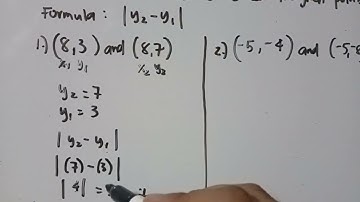 Formula: |y₂ - y₁|
1.) (8,3) and (8,7)
x₁ y₁ x₂ y₂
y₂ = 7
y₁ = 3
|y₂ - y₁|
|(7) - (3)|
|4| =
2.) (-5,-4) and (-5,-8